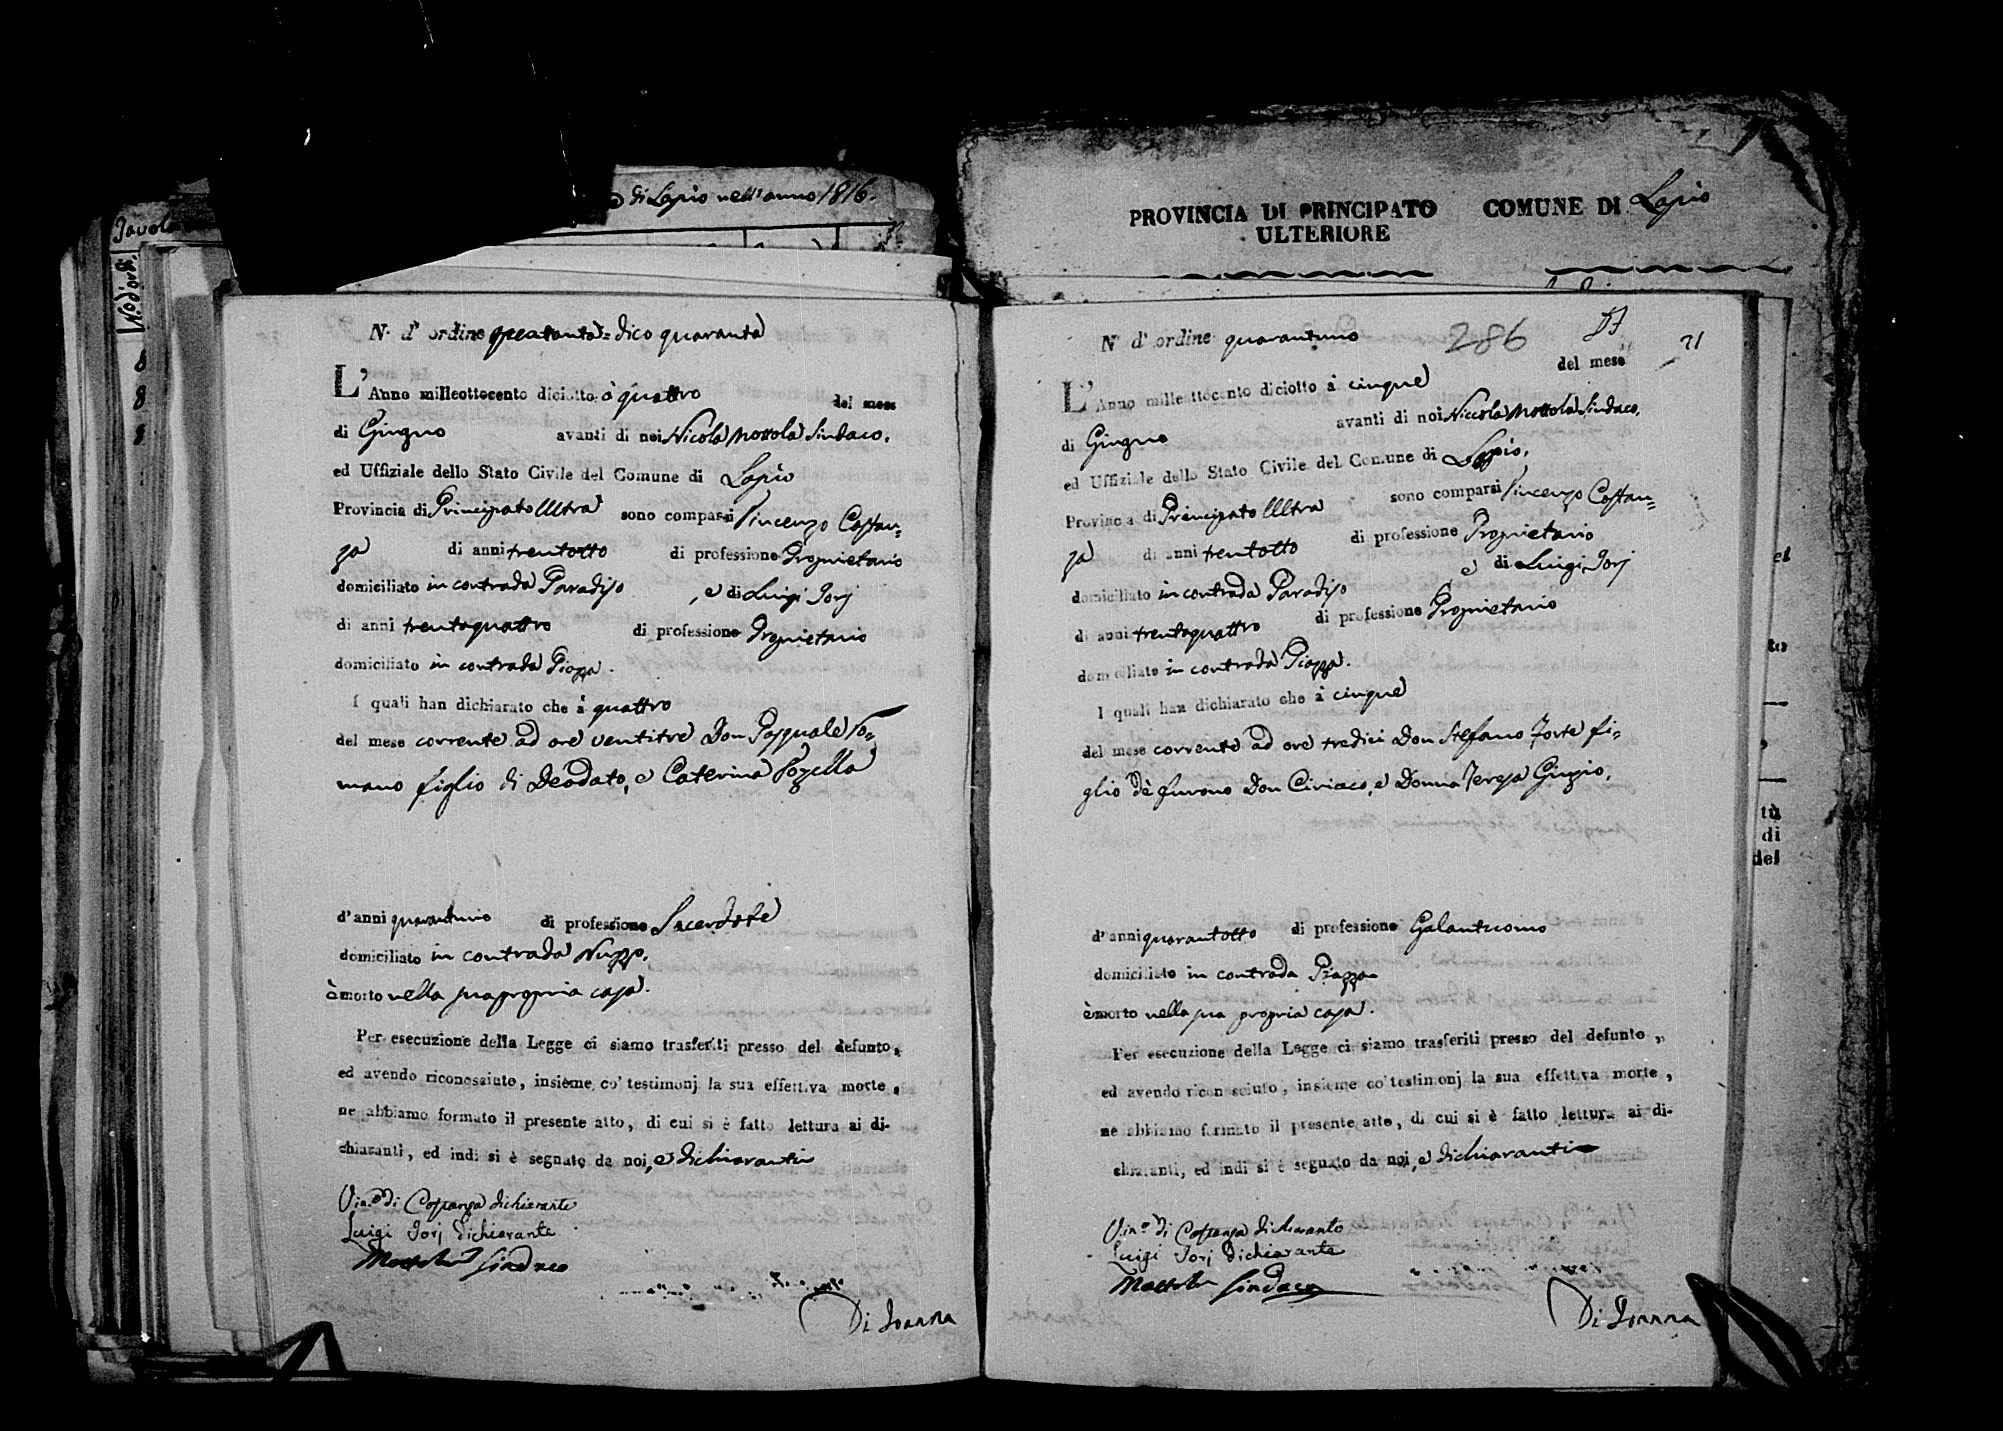 di Lapio nell'anno 1816.
Tavola
N.o d'ordi.
8
8
8
PROVINCIA DI PRINCIPATO
ULTERIORE
COMUNE DI Lapio
N. d' ordine quaranta = dico quaranta
L'Anno milleottocento diciotto à quattro del mese
di Giugno avanti di noi Nicola Mottola Sindaco,
ed Uffiziale dello Stato Civile del Comune di Lapio
Provincia di Principato Ultra sono comparsi Vincenzo Costan=
za di anni trentotto di professione Proprietario
domiciliato in contrada Paradiso, e di Luigi Jorj
di anni trentaquattro di professione Proprietario
domiciliato in contrada Piazza.
I quali han dichiarato che à quattro
del mese corrente ad ore ventitre Don Pasquale Ro=
mano figlio di Deodato, e Caterina Pozella
d'anni quarantuno di professione Sacerdote
domiciliato in contrada
è morto nella sua propria casa.
Per esecuzione della Legge ci siamo trasferiti presso del defunto,
ed avendo riconosciuto, insieme co' testimonj la sua effettiva morte,
ne abbiamo formato il presente atto, di cui si è fatto lettura ai di-
chiaranti, ed indi si è segnato da noi, e dichiaranti
Vin.o di Costanza dichiarante
Luigi Jorj Dichiarante
Mottola Sindaco
Di Joanna
N. d' ordine quarantuno
286
71
L'Anno milleottocento diciotto à cinque del mese
di Giugno avanti di noi Niccola Mottola Sindaco,
ed Uffiziale dello Stato Civile del Comune di Lapio,
Provincia di Principato Ultra sono comparsi Vincenzo Costan=
za di anni trentotto di professione Proprietario
domiciliato in contrada Paradiso e di Luigi Jorj
di anni trentaquattro di professione Proprietario
domiciliato in contrada Piazza.
I quali han dichiarato che à cinque
del mese corrente ad ore tredici Don Stefano Forte fi=
glio dè furono Don Ciriaco, e Donna Teresa Giuzio,
d'anni quarantotto di professione Galantuomo
domiciliato in contrada Piazza
è morto nella sua propria casa.
Per esecuzione della Legge ci siamo trasferiti presso del defunto,
ed avendo riconosciuto, insieme co' testimonj la sua effettiva morte,
ne abbiamo formato il presente atto, di cui si è fatto lettura ai di-
chiaranti, ed indi si è segnato da noi, e dichiaranti
Vin.o di Costanza dichiaranto
Luigi Jorj Dichiarante
Mottola Sindaco
Di Joanna
tù
di
del